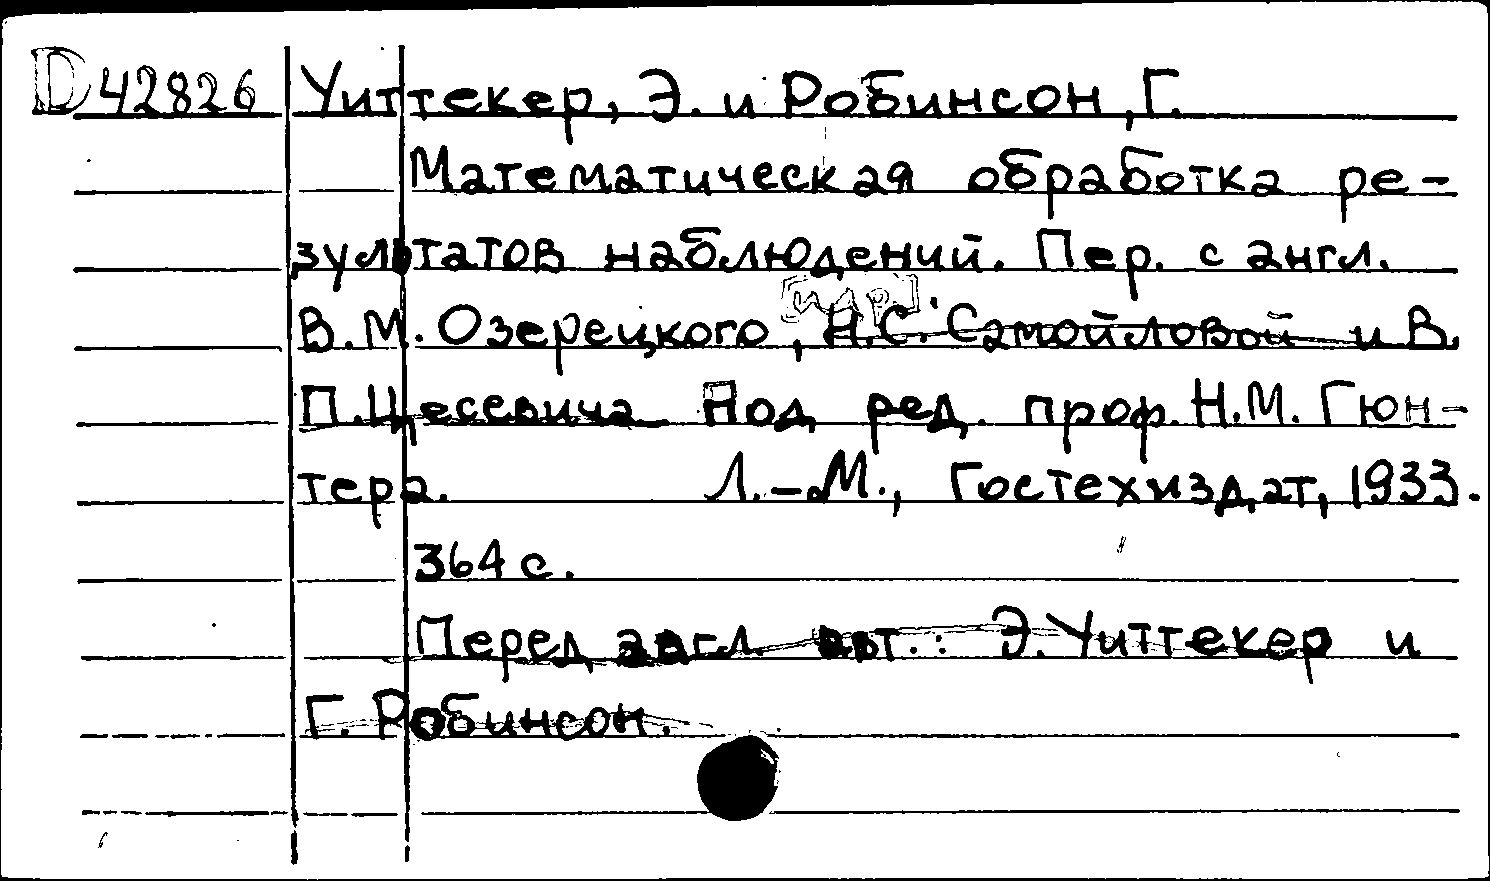 D42826 Уиттекер, Э. и Робинсон, Г.
Математическая обработка ре-
зультатов наблюдений. Пер. с англ.
[и др.]
В.М. Озерецкого, Н.С. Самойловой и В.
П. Цесевича Под ред. проф. Н.М. Гюн-
тера. Л.-М., Гостехиздат, 1933.
364 с.
Перед загл. авт.: Э. Уиттекер и
Г. Робинсон.